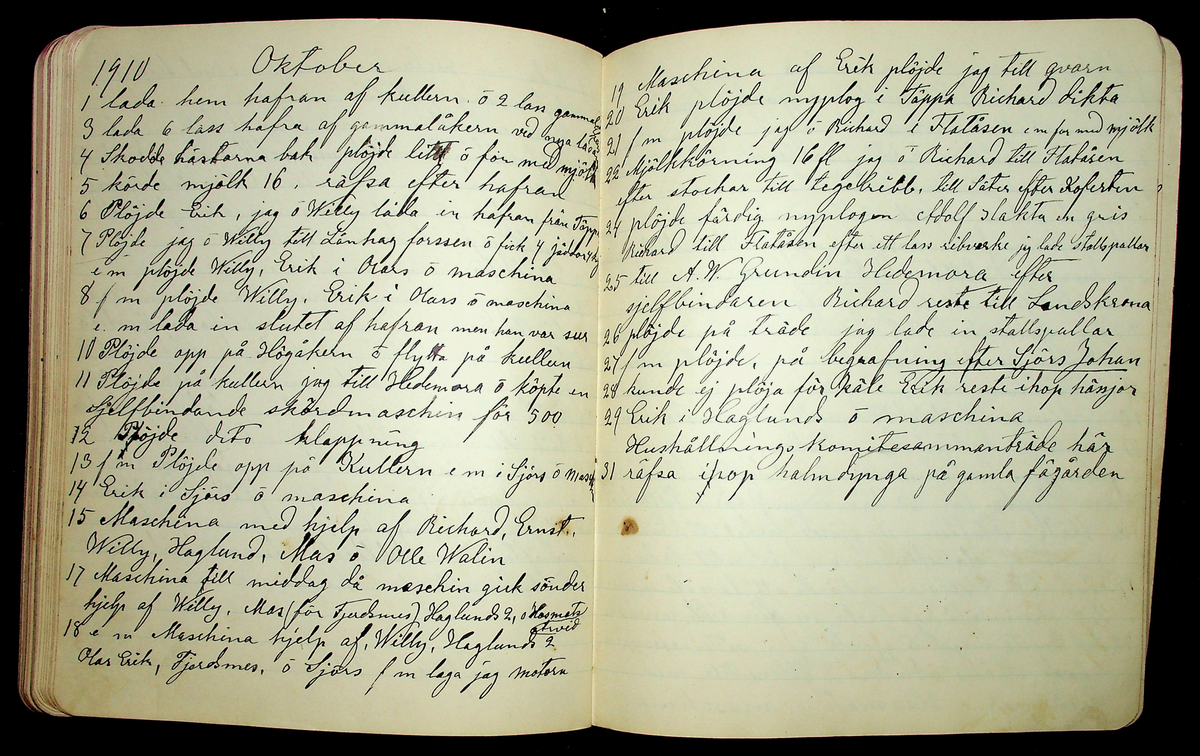 1910 Oktober
1 lada hem hafran af kullern ö 2 lass gammal
3 lada 6 lass hafra af gammalåkern ved nya ladan
4 Skodde hästarna bak plöjde litt ö för med mjölk
5 körde mjölk 16. räfsa efter hafran
6 Plöjde Erik, jag ö Willy lada in hafran från Täppa
7 Plöjde jag ö Willy till Långhag forssen ö fick 4 jäddor
e m plöjde Willy, Erik i Olars ö maschina
8 f m plöjde Willy, Erik i Olars ö maschina
e. m lada in slutet af hafran men han var sur
10 Plöjde opp på Högåkern ö flytta på kullun
11 Plöjde på kullern jag till Hedemora ö köpte en
Sjelfbindande skördmaschin för 500
12 Plöjde dito klappning
13 f m Plöjde opp på Kullern e m i Sjörs ö
14 Erik i Sjörs ö maschina
15 Maschina med hjelp af Richard, Ernst,
Willy, Haglund, Mas ö Olle Walin
17 Maschina till middag då maschin gick sönder
hjelp af Willy, Mas (för Tjerdsmes) Haglunds 2, ö Hosmats
18 e m Maschina hjelp af, Willy, Haglunds 2
Olar Erik, Fjerdsmes, ö Sjörs f m laga jag motorn
19 Maschina af Erik plöjde jag till qvarn
20 Erik plöjde nyplog i Täppa Richard dikta
21 f m plöjde jag ö Richard i Flatåsen e m for med mjölk
22 Mjölkkörning 16 fl jag ö Richard till Flatåsen
efter stockar till tegelribb, till Säter efter Koferten
24 plöjde färdig nyplogen Adolf slakta en gris
Richard till Flatåsen efter ett lass ribvirke jg lade stallspallar
25 till A. W. Grundin Hedemora efter
sjelfbindaren Richard reste till Landskrona
26 plöjde på träde jag lade in stallspallar
27 f m plöjde, på begrafning efter Sjörs Johan
28 kunde ej plöja för käle Erik reste ihop hänjor
29 Erik i Haglunds ö maschina
Hushållningskomitesammanträde här
31 räfsa ihop halmdynga på gamla fägården